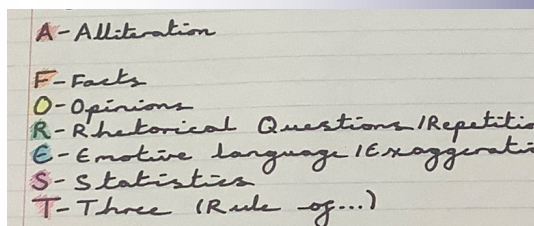 A - Alliteration
F - Facts
O - Opinions
R - Rhetorical Questions / Repetitio
E - Emotive language / Exaggerati
S - Statistics
T - Three (Rule of...)